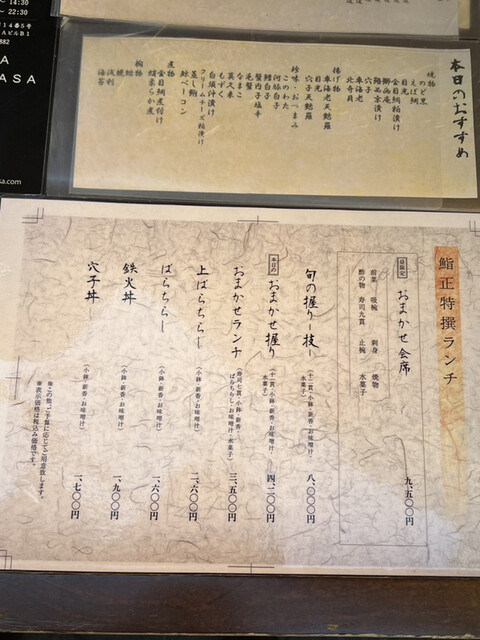 本日のおすすめ
焼物
のど黒
えぼ鯛
目光
金目鯛粕漬け
穴子
車海老
北寄貝
揚げ物
車海老天麩羅
目光
穴子天麩羅
珍味・おつまみ
このわた
河豚白子
鱈白子
蟹内子塩辛
毛蟹
なまこ
莫久来
もずく
白魚汁漬け
クリームチーズ粕漬け
蒸し鮑
鮭ベーコン
煮物
金目鯛煮付け
鯛あら煮
椀物
蛤
浅利
海苔
14:30
~ 22:30
14番5号
ビルB1
882
A
ASA
sa.com
鮨正特撰ランチ
昼限定
おまかせ会席
九、五〇〇円
前菜 吸椀 刺身 焼物
酢の物 寿司九貫 止椀 水菓子
旬の握り―技―
(十一貫・小鉢・新香・お味噌汁・水菓子)
八、〇〇〇円
本日の
おまかせ握り
(十一貫・小鉢・新香・お味噌汁・水菓子)
四、二〇〇円
おまかせランチ
(寿司七貫・小鉢・新香・ばらちらし・お味噌汁・水菓子)
三、五〇〇円
上ばらちらし
(小鉢・新香・お味噌汁)
二、六〇〇円
ばらちらし
(小鉢・新香・お味噌汁)
一、六〇〇円
鉄火丼
(小鉢・新香・お味噌汁)
一、九〇〇円
穴子丼
(小鉢・新香・お味噌汁)
一、七〇〇円
※この他、ご予算に応じてご用意致します。
※表示価格は税込み価格です。